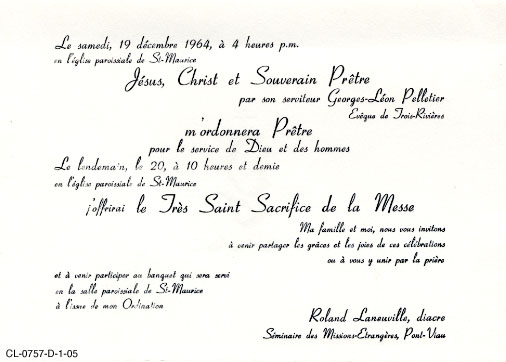 Le samedi, 19 décembre 1964, à 4 heures p.m.
en l'église paroissiale de St-Maurice
Jésus, Christ et Souverain Prêtre
par son serviteur Georges-Léon Pelletier
Evêque de Trois-Rivières
m'ordonnera Prêtre
pour le service de Dieu et des hommes
Le lendemain, le 20, à 10 heures et demie
en l'église paroissiale de St-Maurice
j'offrirai le Très Saint Sacrifice de la Messe
Ma famille et moi, nous vous invitons
à venir partager les grâces et les joies de ces célébrations
ou à vous y unir par la prière
et à venir participer au banquet qui sera servi
en la salle paroissiale de St-Maurice
à l'issue de mon Ordination
Roland Laneuville, diacre
Séminaire des Missions-Etrangères, Pont-Viau
CL-0757-D-1-05